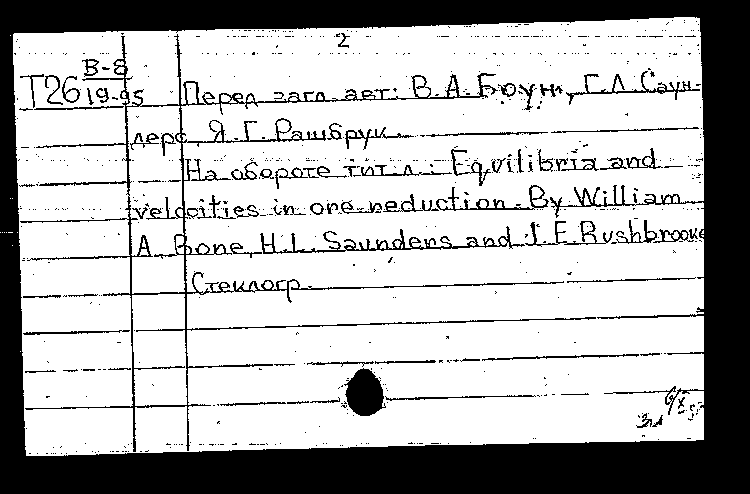 2
В-8
Т26 19-95 Перед загл. авт: В. А. Боун, Г. Л. Саун-
дерс, Я. Г. Рашбрук.
На обороте тит. л.: Equilibria and
velocities in ore reduction. By William
A. Bone, H. L. Saunders and J. E. Rushbrooke
Стеклогр.